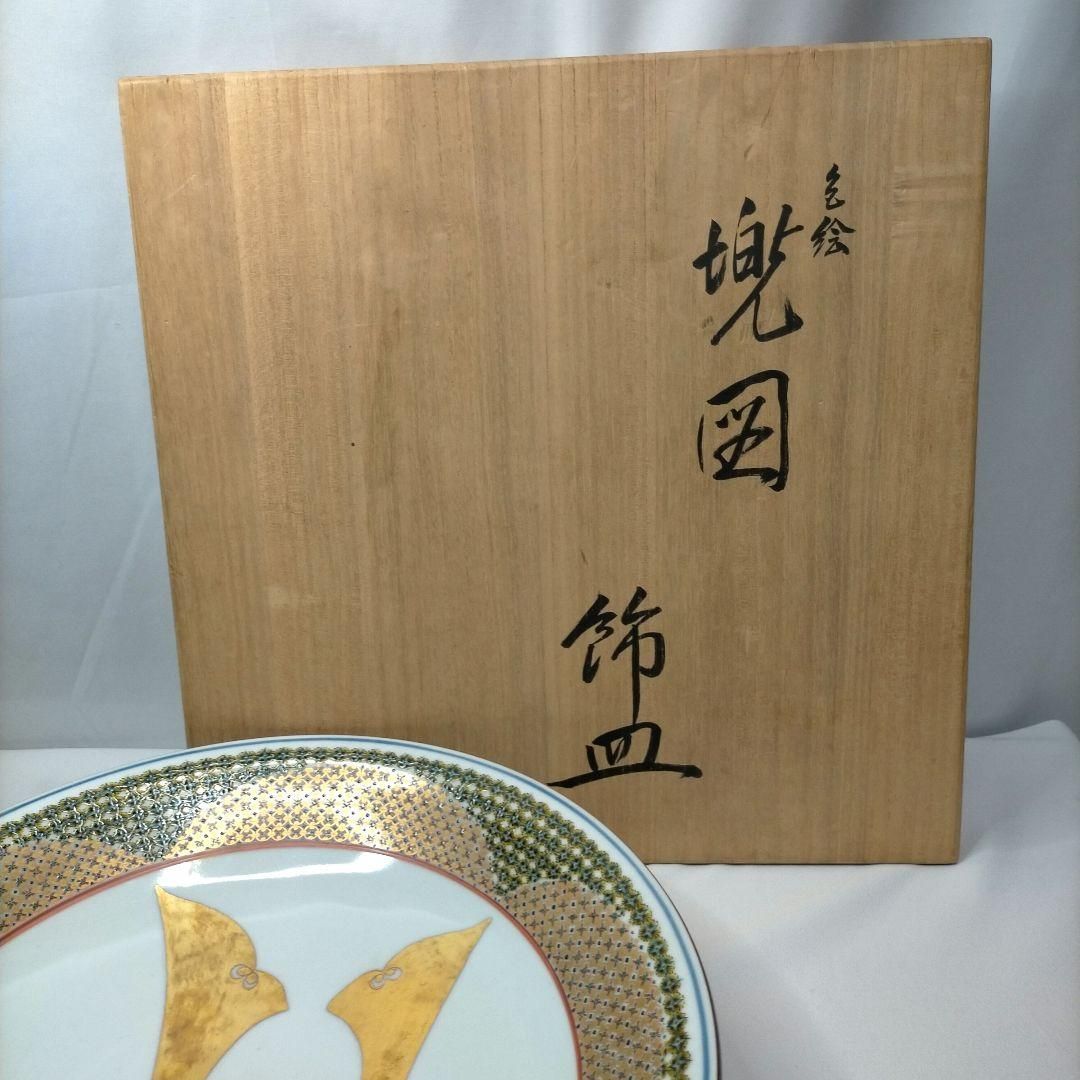 色絵
兜図
飾皿